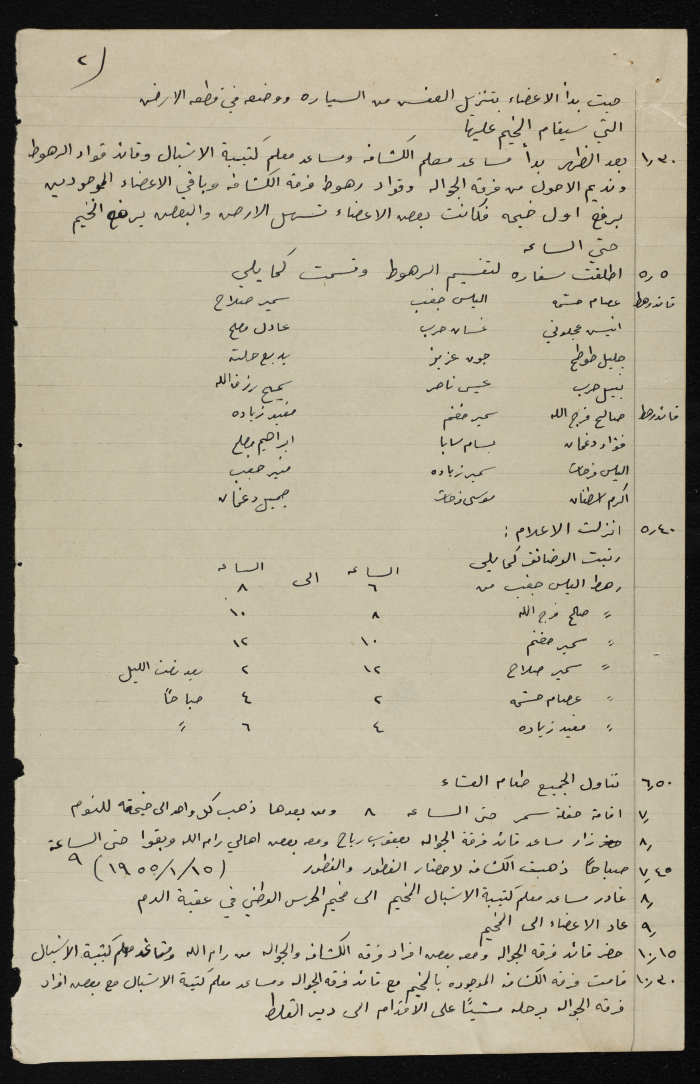 (٢
حيث بدأ الاعضاء بتنزيل العفش من السياره ووضعه في قطعه الارض
التي سيقام المخيم عليها
١,٣٠ بعد الظهر بدأ مساعد معلم الكشافه ومساعد معلم كتيبة الاشبال وقائد قواد الرهوط
ونديم الاحول من فرقة الجواله وقواد رهوط فرقة الكشافه وباقي الاعضاء الموجودين
برفع اول خيمه فكانت بعض الاعضاء تسهل الارض والبعض يرفع المخيم
حتى الساعه
٥,٥ اطلقت سفاره لتقسيم الرهوط وقسمت كما يلي
قائد رهط عصام حشمه الياس جغب سمير صلاح
انيس عجلوني غسان حرب عادل مصلح
جليل طوطح جون عزيز بديع حلته
نبيل حرب عيسى ناصر سميح رزق الله
قائد رهط صالح فرج الله سمير مغنم مفيد زياده
فؤاد دغمان بسام سابا ابراهيم مصلح
الياس فرحات سمير زياده منير جغب
اكرم اسطفان موسى فرحات جميل دغمان
٥,٤٠ انزلت الاعلام :
رتبت الوضائف كما يلي
الساعه الساعه
رهط الياس جغب من ٦ الى ٨
〃 صالح فرج الله ٨ ١٠
〃 سمير مغنم ١٠ ١٢
〃 سمير صلاح ١٢ ٢ بعد نصف الليل
〃 عصام حشمه ٢ ٤ صباحًا
〃 مفيد زياده ٤ ٦ 〃
٦,٥٠ تناول الجميع طعام العشاء
٧, اقامة حفلة سمر حتى الساعه ٨ ومن بعدها ذهب كل واحد الى خيمته للنوم
٨, زار مساعد قائد فرقة الجواله يعقوب رباح ومعه بعض اهالي رام الله وبقوا حتى الساعة ٩
٧,٤٥ صباحًا ذهبت الكشافه لاحضار الفطور والفطور (١٩٥٥/١/١٥)
٨, غادر مساعد معلم كتيبة الاشبال المخيم الى مخيم الحرس الوطني في عقبة الدم
٩, عاد الاعضاء الى المخيم
١٠,١٥ حضر قائد فرقه الجواله ومعه بعض افراد فرقه الكشافه والجواله من رام الله ومساعد معلم كتيبة الاشبال
١٠,٣٠ قامت فرقة الكشافه الموجوده بالمخيم مع قائد فرقة الجواله ومساعد معلم كتيبة الاشبال مع بعض افراد
فرقه الجواله برحله مشيًا على الاقدام الى دير القلط